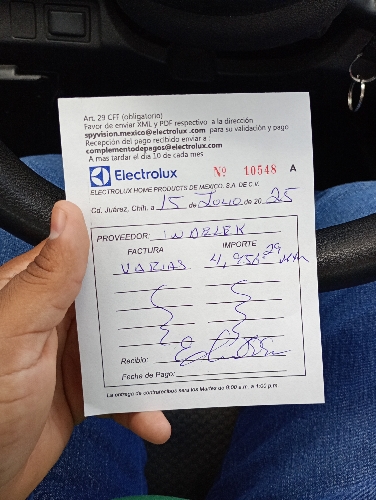 Art. 29 CFF (obligatorio)
Favor de enviar XML y PDF respectivo a la dirección
spyvision.mexico@electrolux.com para su validación y pago
Recepción del pago recibido enviar a
complementodepagos@electrolux.com
A mas tardar el dia 10 de cada mes
Electrolux Nº 10548 A
ELECTROLUX HOME PRODUCTS DE MEXICO, S.A. DE C.V.
Cd. Juárez, Chih. a 15 de Julio de 20 25
PROVEEDOR: INDELEK
FACTURA IMPORTE
VARIAS 29
Recibio:
Fecha de Pago:
La entrega de contrarecibos sera los Martes de 9:00 a.m. a 1:00 p.m.